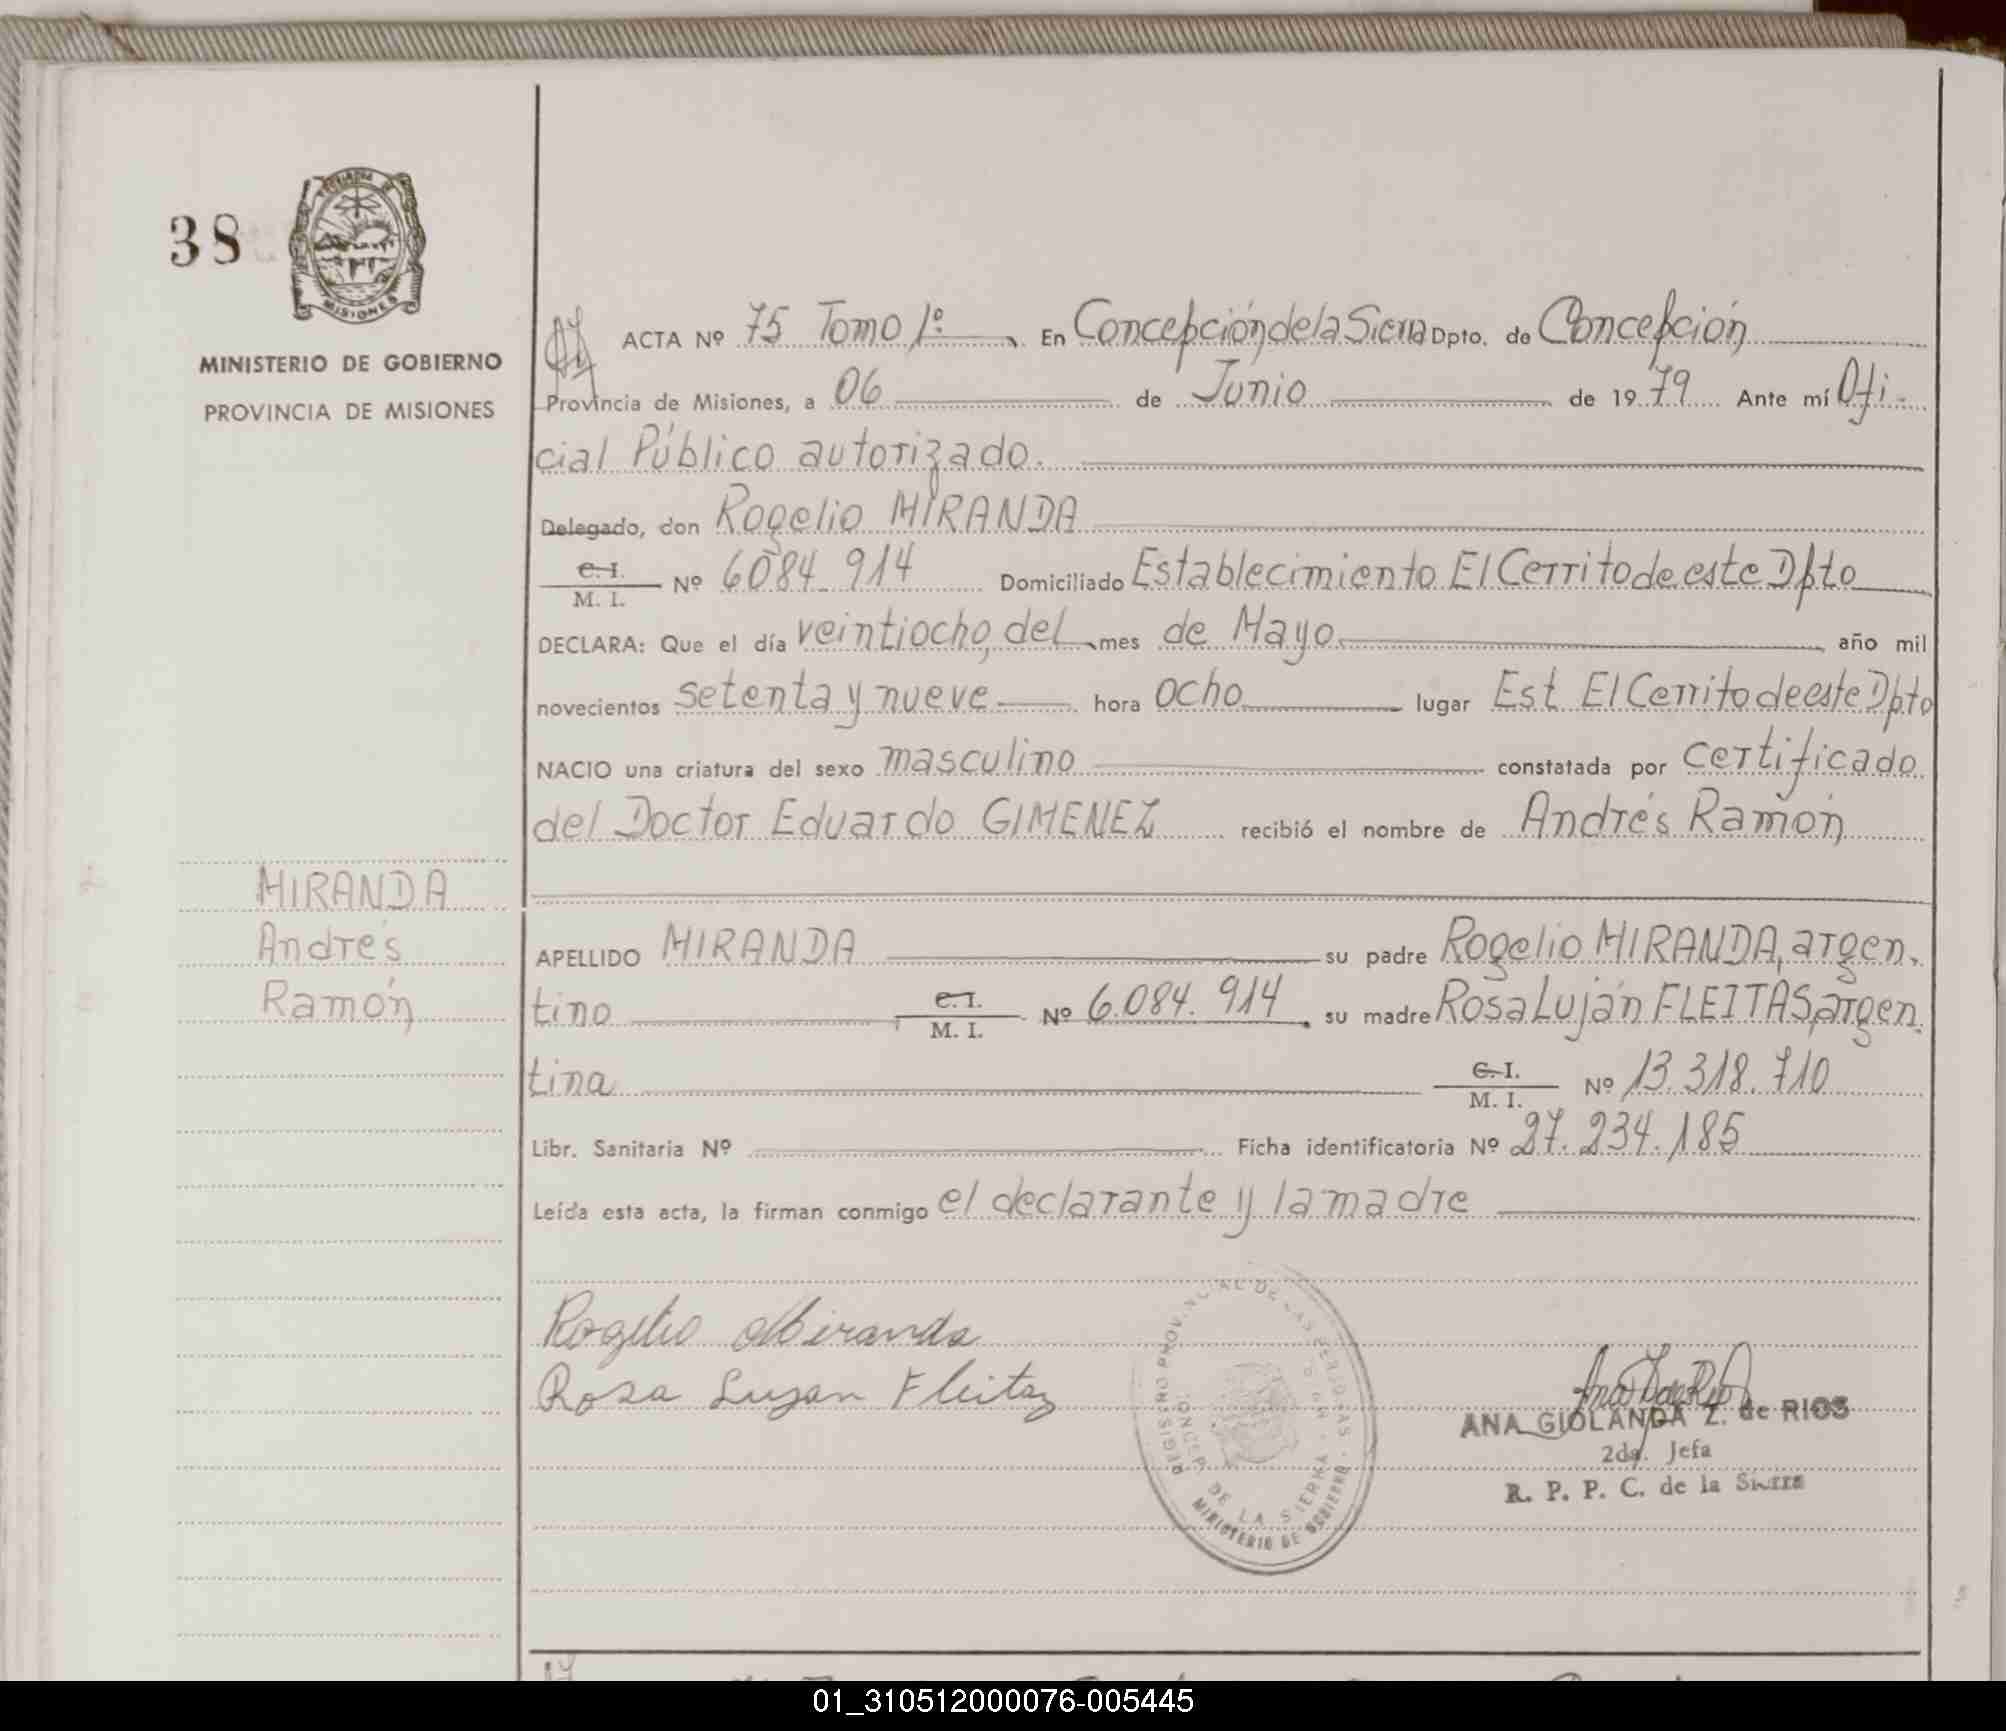 38
MISIONES
MINISTERIO DE GOBIERNO
PROVINCIA DE MISIONES
MIRANDA
Andrés
Ramón
ACTA Nº 75 Tomo 1º. En Concepción de la Sierra Dpto. de Concepción
Provincia de Misiones, a 06 de Junio de 1979 Ante mí Ofi-
cial Público autorizado.
Delegado, don Rogelio MIRANDA
C. I.
M. I. Nº 6084.914 Domiciliado Establecimiento El Cerrito de este Dpto
DECLARA: Que el día veintiocho, del mes de Mayo año mil
novecientos setenta y nueve hora ocho lugar Est. El Cerrito de este Dpto
NACIO una criatura del sexo masculino constatada por certificado
del Doctor Eduardo GIMENEZ recibió el nombre de Andrés Ramón
APELLIDO MIRANDA su padre Rogelio MIRANDA, argen-
tino C. I.
M. I. Nº 6.084.914 su madre Rosa Luján FLEITAS, argen-
tina C. I.
M. I. Nº 13.318.710
Libr. Sanitaria Nº Ficha identificatoria Nº 27.234.185
Leída esta acta, la firman conmigo el declarante y la madre
Rogelio Miranda
Rosa Lujan Fleitaz
REGISTRO PROVINCIAL DE LAS PERSONAS
CONCEP. DE LA SIERRA
MINISTERIO DE GOBIERNO
ANA GIOLANDA Z. de RIOS
2da. Jefa
R. P. P. C. de la Sierra
01_310512000076-005445